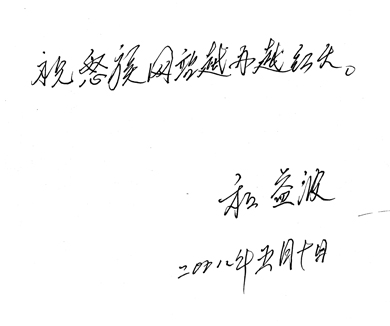 祝怒族网站越办越红火。
和益波
二〇〇八年五月十日